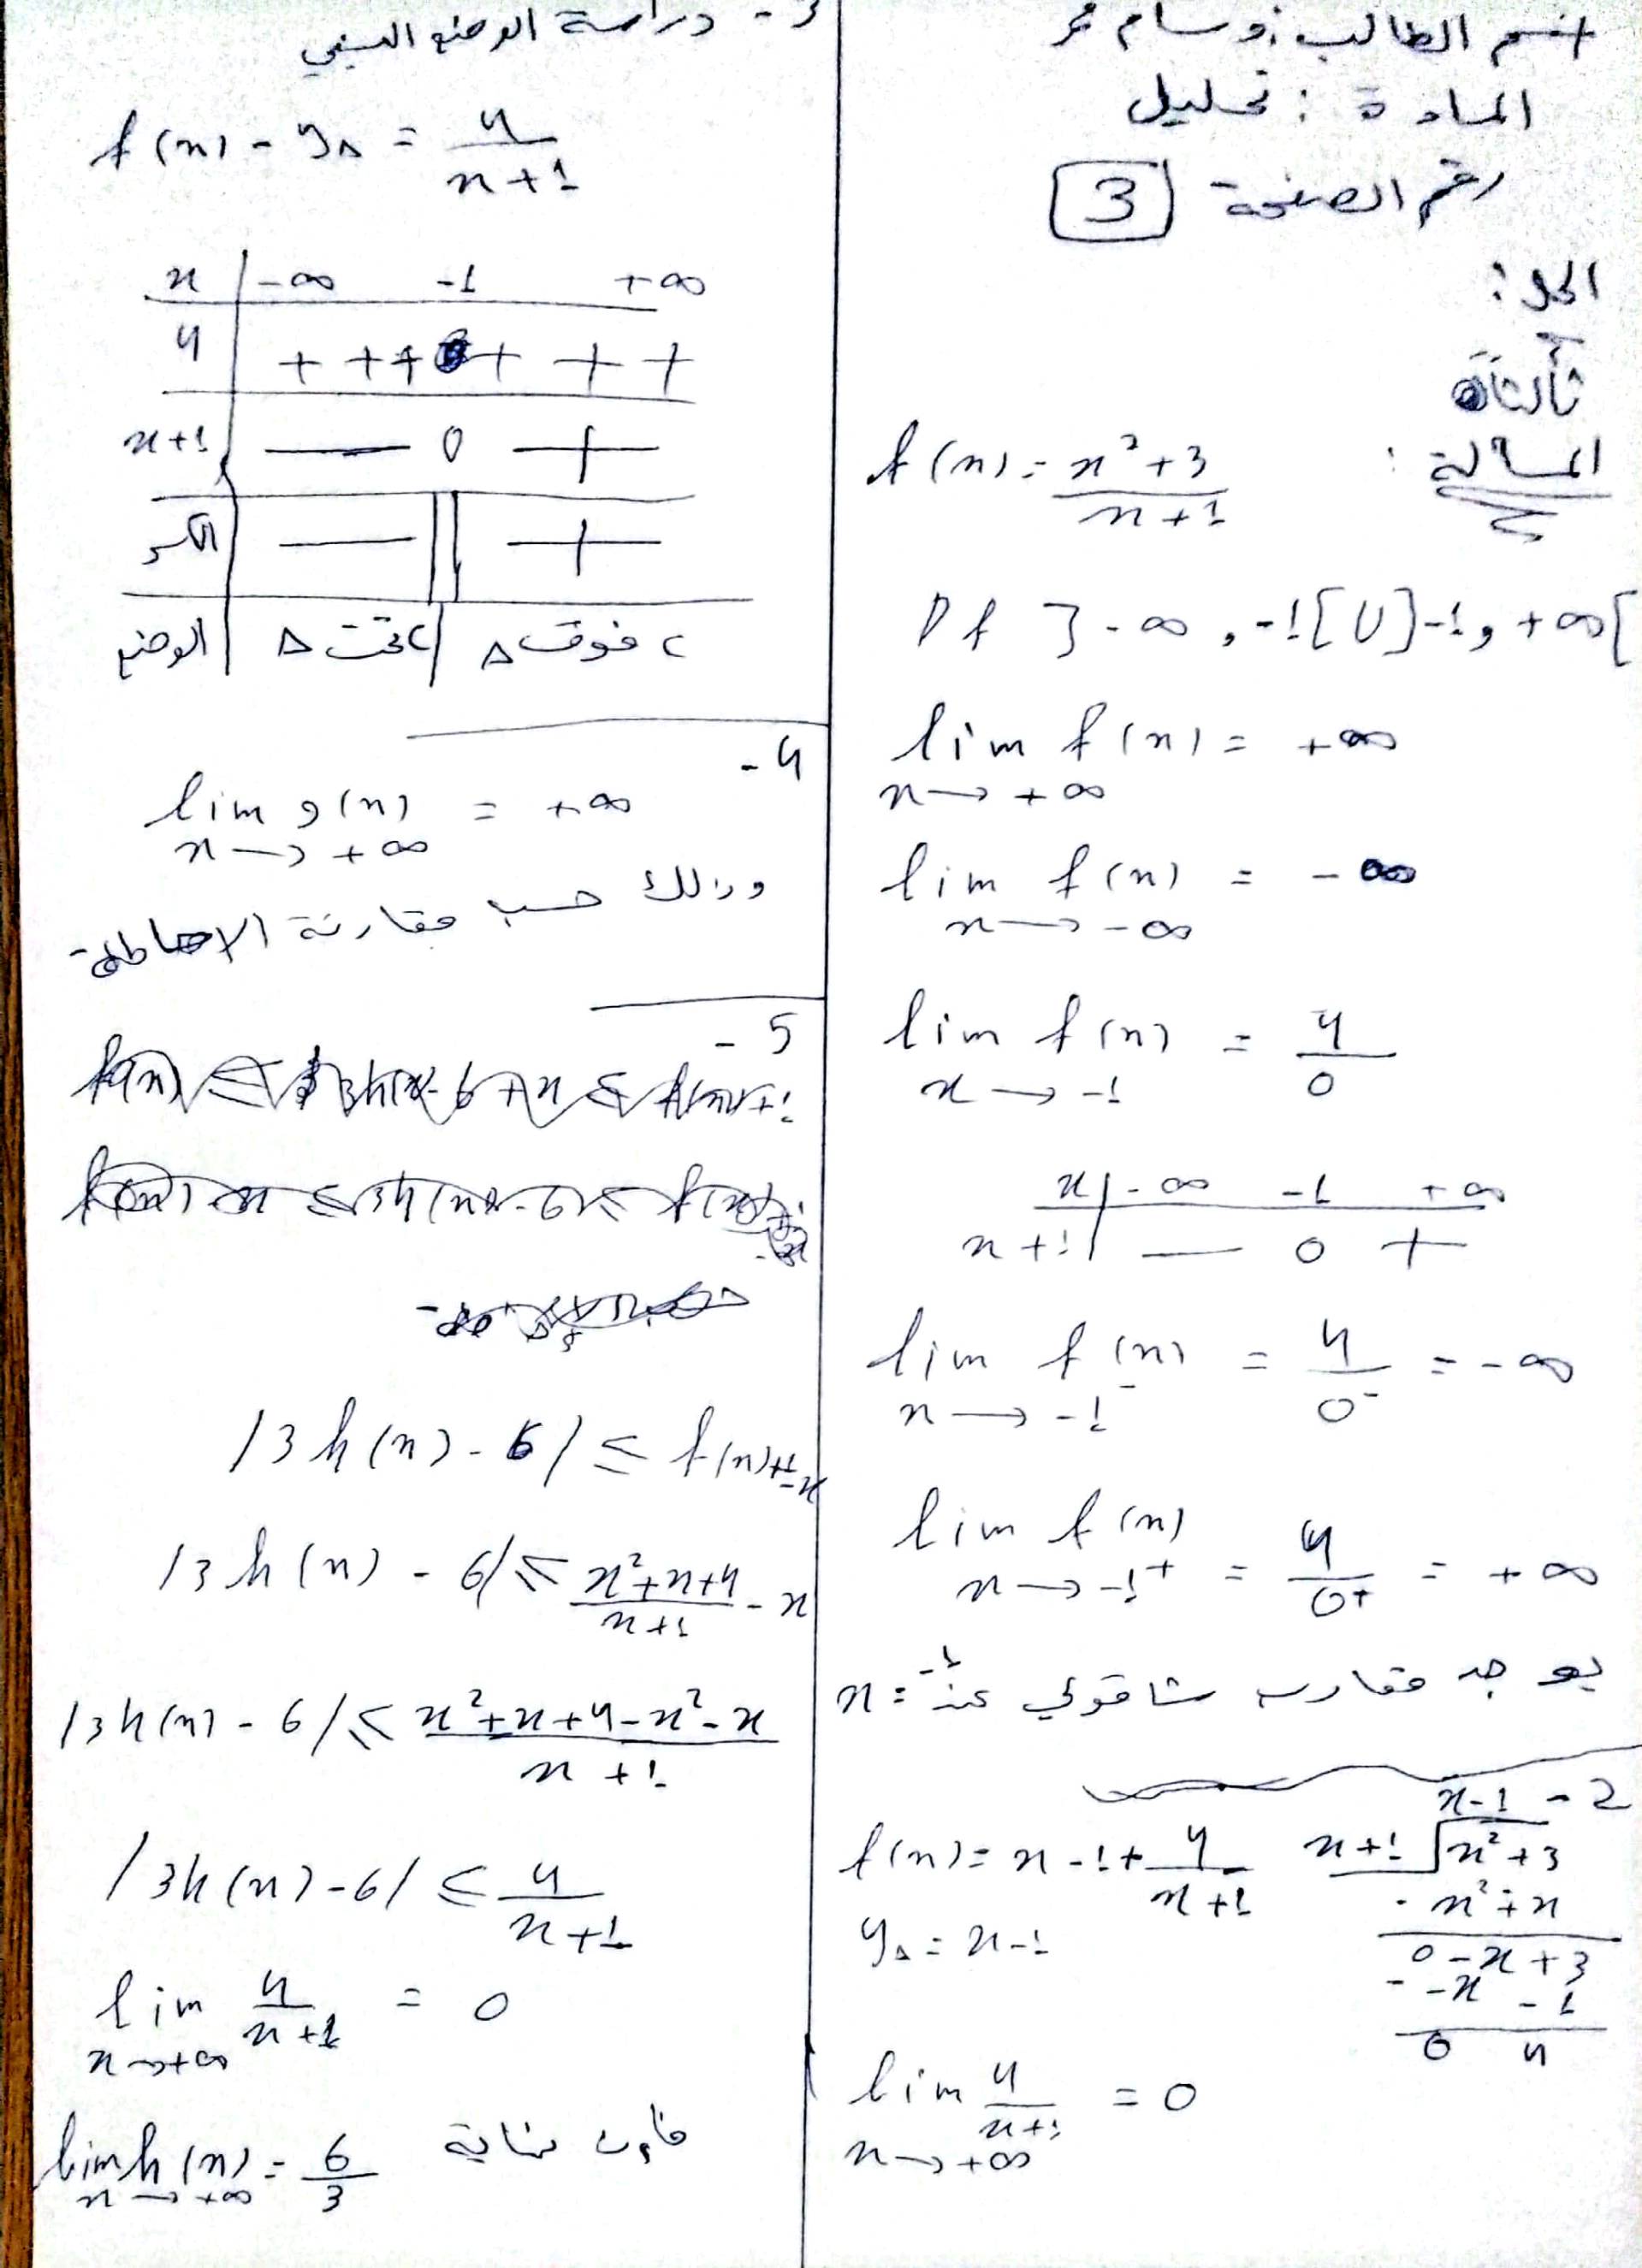 اسم الطالب: وسام
المادة: تحليل
رقم الصفحة 3
الحل:
ثالثاً
المسألة:
f(x) = \frac{x²+3}{x+1}
Df ]-∞, -1[ U ]-1, +∞[
lim f(x) = +∞
x → +∞
lim f(x) = -∞
x → -∞
lim f(x) = \frac{4}{0}
x → -1
x | -∞ -1 +∞
x+1 | — 0 +
lim f(x) = \frac{4}{0⁻} = -∞
x → -1⁻
lim f(x) = \frac{4}{0⁺} = +∞
x → -1⁺
يوجد مقارب شاقولي عند x = -1
2 -
x-1
x+1 √ x²+3
- x²+x
0 -x+3
- -x -1
0 4
f(x) = x-1+\frac{4}{x+1}
y_Δ = x-1
lim \frac{4}{x+1} = 0
x → +∞
3 - دراسة الوضع النسبي
f(x) - y_Δ = \frac{4}{x+1}
x | -∞ -1 +∞
4 | + + + + + +
x+1 | — 0 +
الكسر | — || +
الوضع | C تحت Δ | C فوق Δ
4 -
lim g(x) = +∞
x → +∞
وذلك حسب مقارنة الاحاطة
5 -
|3h(x) - 6| ≤ f(x)+1-x
|3h(x) - 6| ≤ \frac{x²+x+4}{x+1} - x
|3h(x) - 6| ≤ \frac{x²+x+4-x²-x}{x+1}
|3h(x) - 6| ≤ \frac{4}{x+1}
lim \frac{4}{x+1} = 0
x → +∞
lim h(x) = \frac{6}{3}
x → +∞